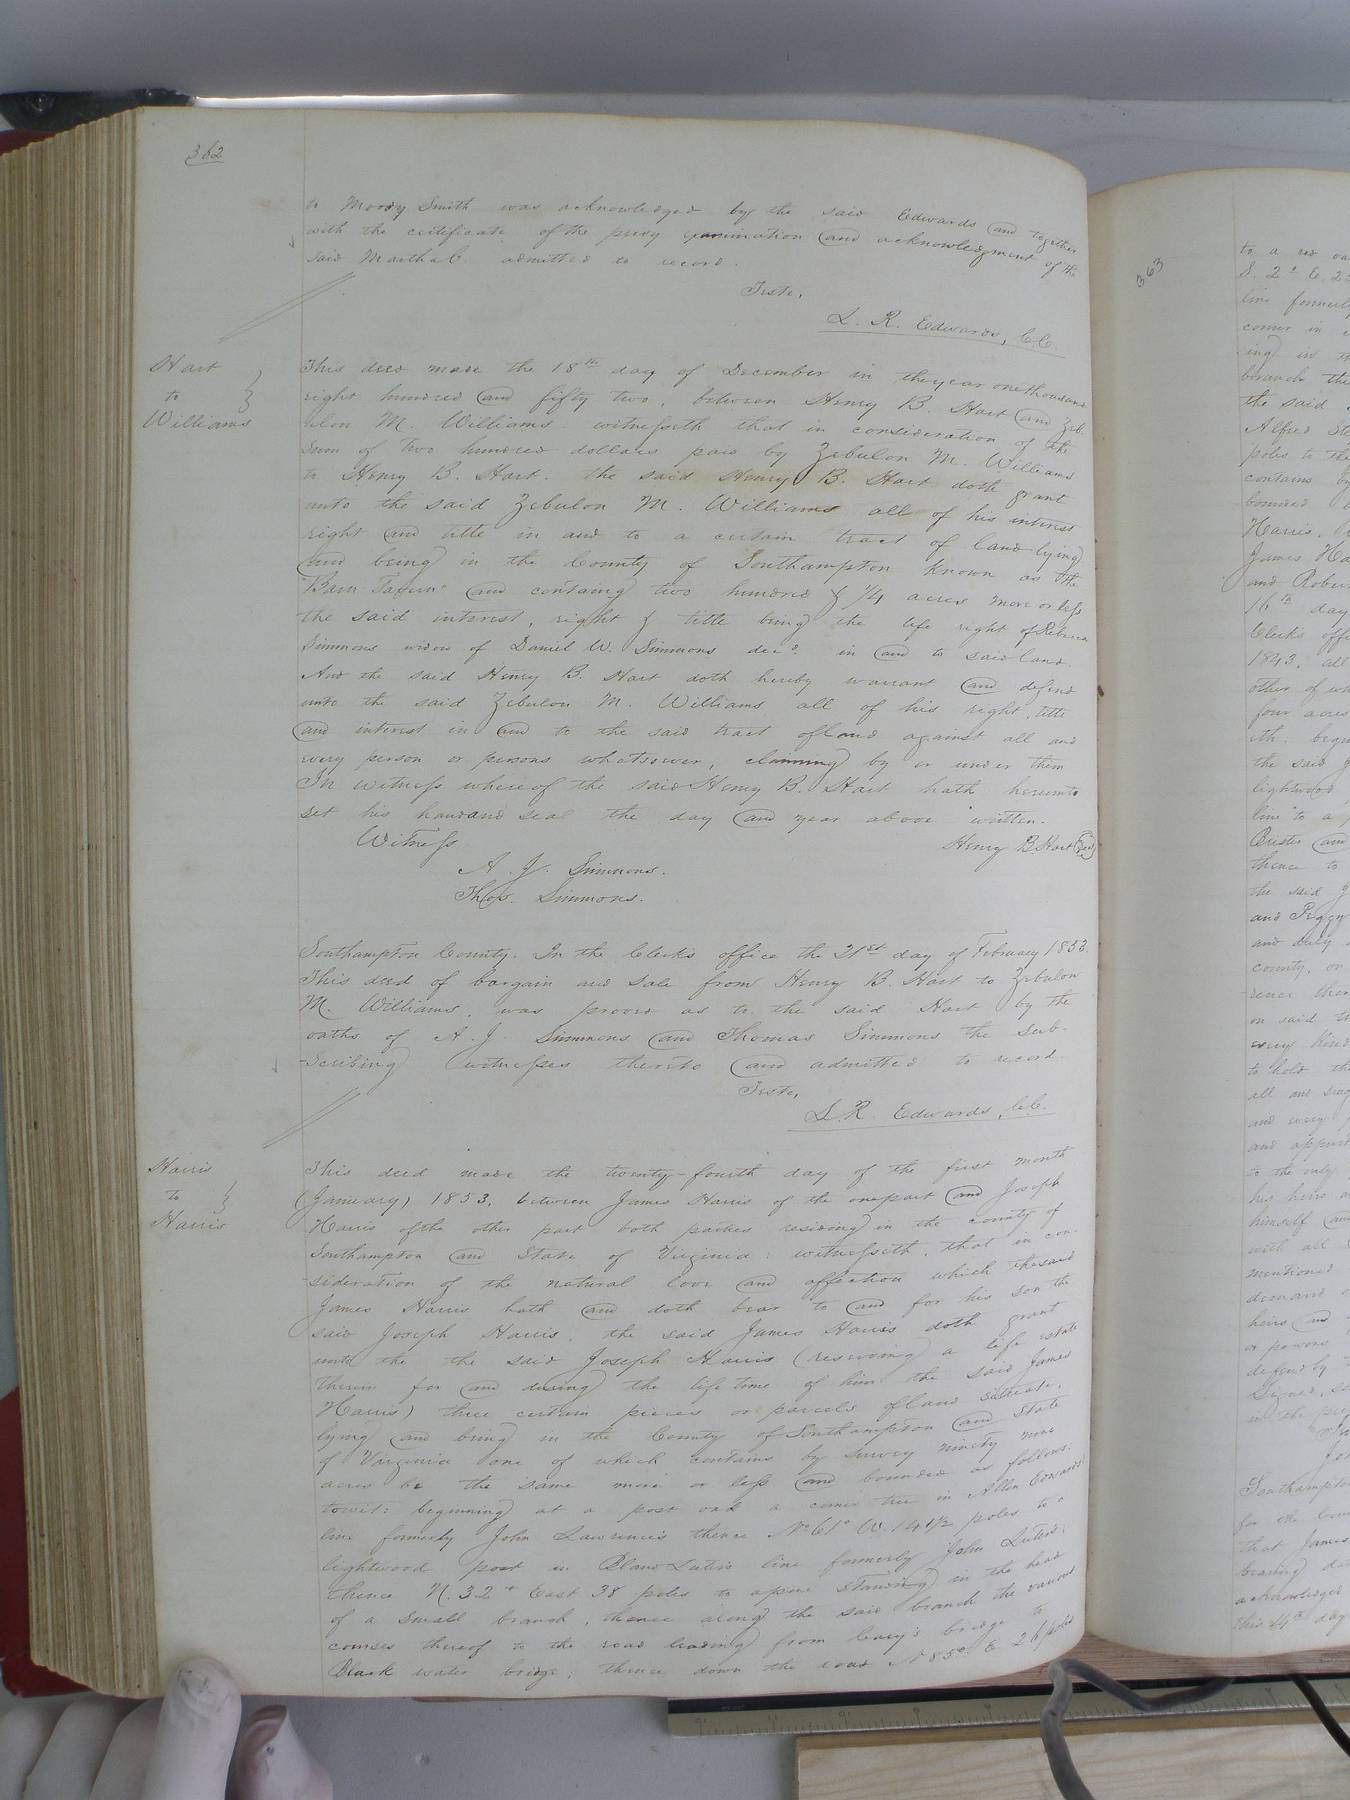 362
to Moody Smith was acknowledged by the said Edwards and together
with the certificate of the privy examination and acknowledgment of the
said Martha C. admitted to record.
Teste,
L. R. Edwards, C.C.
Hart
to
Williams
This deed made the 18th day of December in the year one thousand
eight hundred and fifty two, between Henry B. Hart and Zeb-
ulon M. Williams. witnesseth that in consideration of the
sum of two hundred dollars paid by Zebulon M. Williams
to Henry B. Hart. the said Henry B. Hart doth grant
unto the said Zebulon M. Williams all of his interest
right and title in and to a certain tract of land lying
and being in the County of Southampton known as the
"Barn Tavern" and containg two hundred & 1/4 acres more or less
the said interest, right & title being the life right of Rebecca
Simmons widow of Daniel W. Simmons decd. in and to said land.
And the said Henry B. Hart doth hereby warrant and defend
unto the said Zebulon M. Williams all of his right, title
and interest in and to the said tract of land against all and
every person or persons whatsoever, claiming by or under them
In witness whereof the said Henry B. Hart hath hereunto
set his hand and seal the day and year above written.
Witness
Henry B. Hart Seal
A. J. Simmons.
Thos. Simmons.
Southampton County. In the Clerks office the 21st day of February 1853.
This deed of bargain and sale from Henry B. Hart to Zebulon
M. Williams, was proved as to the said Hart by the
oaths of A. J. Simmons and Thomas Simmons the sub-
-scribing witnesses thereto and admitted to record
Teste,
L. R. Edwards, C.C.
Harris
to
Harris
This deed made the twenty-fourth day of the first month
(January) 1853, between James Harris of the one part and Joseph
Harris of the other part both parties residing in the county of
Southampton and State of Virginia: witnesseth, that in con-
-sideration of the natural love and affection which the said
James Harris hath and doth bear to and for his son the
said Joseph Harris, the said James Harris doth grant
unto the the said Joseph Harris (reserving a life estate
therein for and during the life time of him the said James
Harris) three certain pieces or parcels of land situate,
lying and being in the County of Southampton and State
of Virginia one of which contains by survey ninety nine
acres be the same more or less and bounded as follows:
towit: beginning at a post oak a corner tree in Allen Edwards'
line formerly John Lawrence's thence N. 61° W. 14 1/2 poles to a
lightwood post in line formerly John
thence N. 32° East 38 poles to a pine standing in the head
of a small branch, thence along the said branch the various
courses thereof to the road leading from bridge to
Black water bridge; thence down the road N 85° E 26 poles
363
to a red
S. 2° E.
line formerly
corner in
ing in
branch the
the said
Alfred
poles to the
contains by
bounded
Harris,
James
and
16th day
Clerks
1843, all
other of
four acres
the said
lightwood
line to a
and
thence to
the said
and Peggy
and
county, or
on said
every kind
to hold the
all and
and every
and
to the only
his heirs
himself and
with all
mentioned
demand
heirs and
or persons
defend by
Signed,
in the
Southampton
for the
that James
bearing
acknowledged
this 4th day